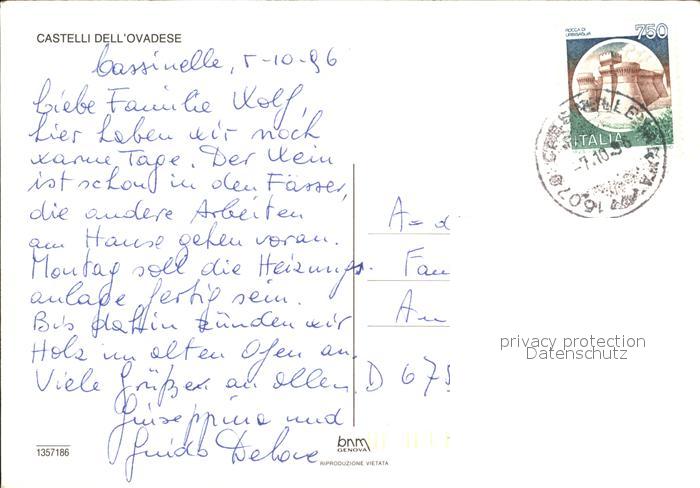 CASTELLI DELL'OVADESE
Cassinelle, 5-10-96
Liebe Familie Wolf,
hier haben wir noch
warme Tage. Der Wein
ist schon in den Fässer,
die andere Arbeiten
am Hause gehen voran.
Montag soll die Heizungs-
anlage fertig sein.
Bis dahin zünden wir
Holz im alten Ofen an.
Viele Grüßen an allen
Giuseppina und
Guido
1357186
bnm
GENOVA
RIPRODUZIONE VIETATA
ROCCA DI
URBISAGLIA
750
ITALIA
-7.10.96
15070
A=
Fam
An
D 675
privacy protection
Datenschutz